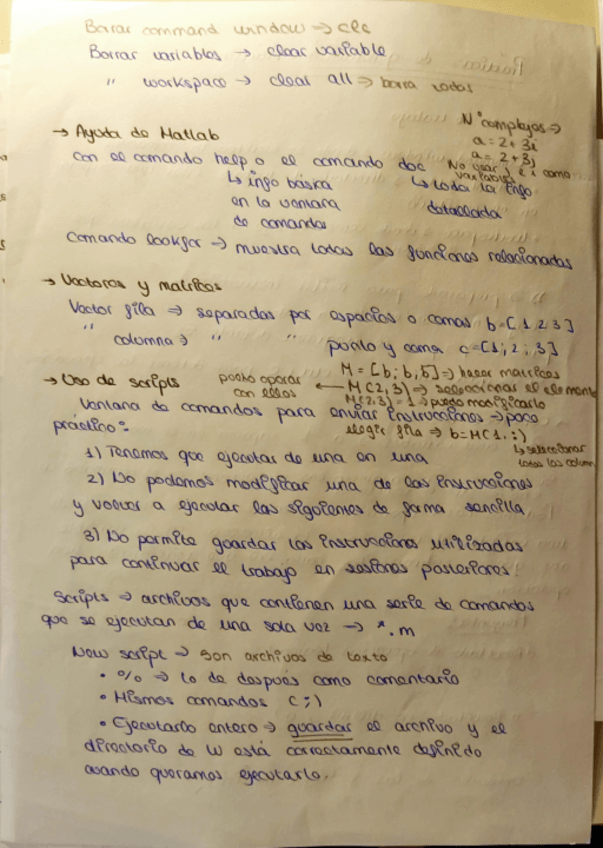 Borrar command window → clc
Borrar variables → clear variable
" workspace → clear all → borra todas
Nº complejos →
a = 2 + 3i
a = 2 + 3j
No usar j e i como variables
→ Ayuda de Matlab
con el comando help o el comando doc
↳ info básica en la ventana de comandos
↳ toda la info detallada
Comando lookfor → muestra todas las funciones relacionadas
→ Vectores y matrices
Vector fila → separadas por espacios o comas b=[1 2 3]
" columna → " " punto y coma c=[1; 2; 3]
M = [b; b, b] → hacer matrices
puedo operar con ellos ← M(2,3) → seleccionar el elemento
M(2,3) = 1 → puedo modificarlo
elegir fila → b=M(1,:)
↳ seleccionar todas las column
→ Uso de scripts
Ventana de comandos para enviar instrucciones → poco
práctico:
1) Tenemos que ejecutar de una en una
2) No podemos modificar una de las instrucciones
y volver a ejecutar las siguientes de forma sencilla
3) No permite guardar las instrucciones utilizadas
para continuar el trabajo en sesiones posteriores.
Scripts → archivos que contienen una serie de comandos
que se ejecutan de una sola vez → *.m
New script → son archivos de texto
• % → lo de después como comentario
• Mismos comandos (;)
• Ejecutarlo entero → guardar el archivo y el
directorio de W está correctamente definido
cuando queramos ejecutarlo.